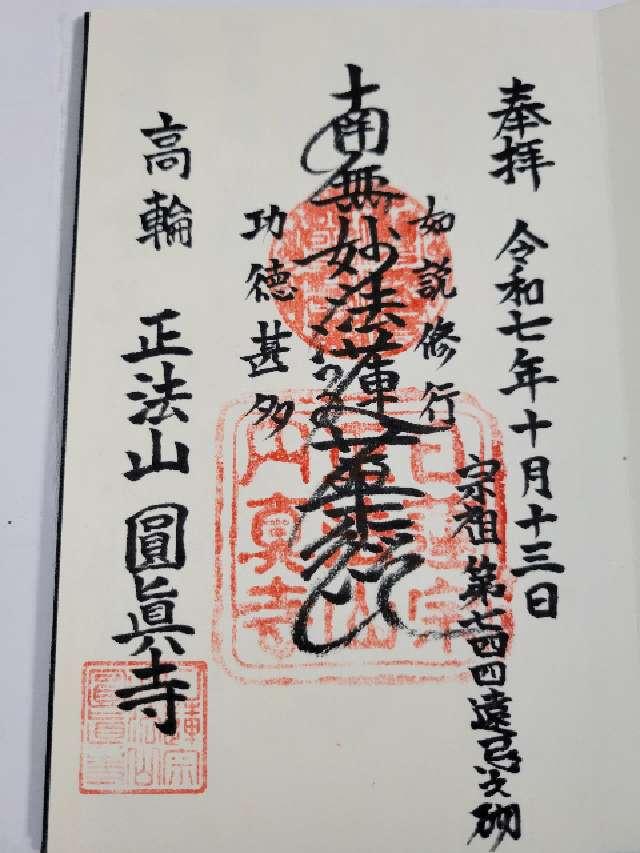 奉拝 令和七年十月十三日
宗祖 第七四四遠忌之砌
如説修行
南無妙法蓮華経
功徳甚多
高輪 正法山 圓眞寺